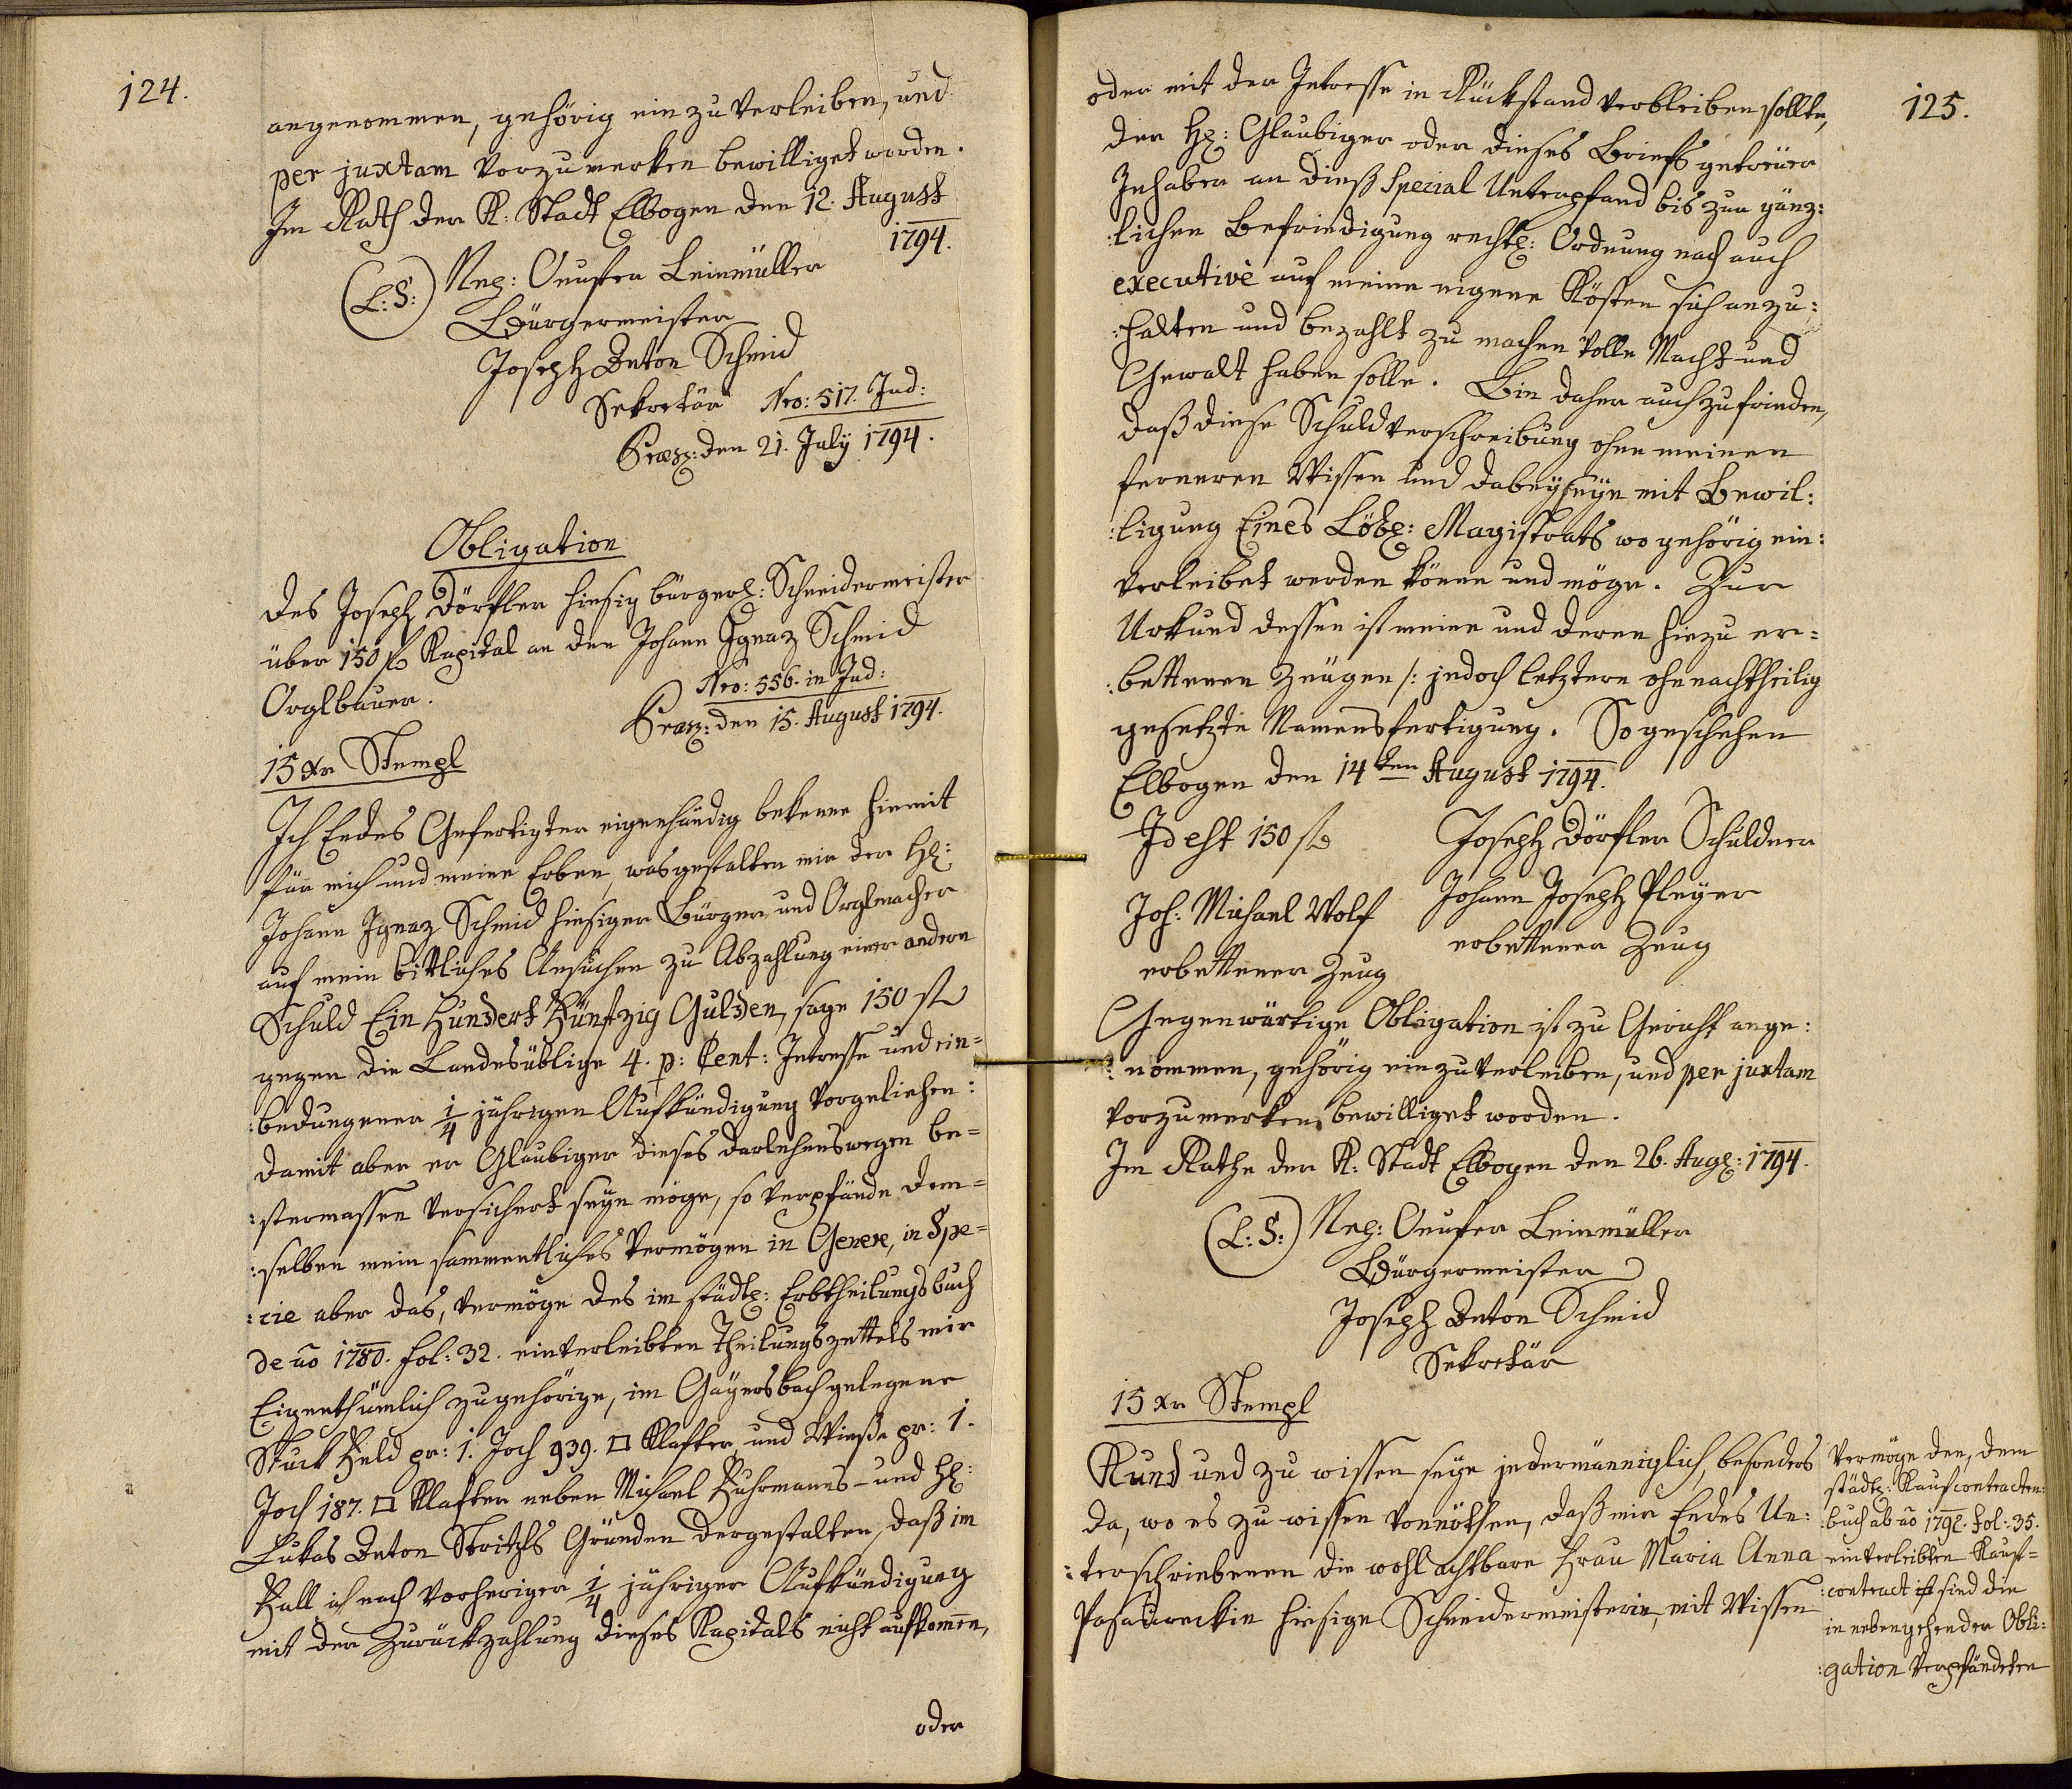 124.
angenommen, gehörig einzuverleiben, und
per juxtam vorzumerken bewilliget worden.
Im Rath der K: Stadt Elbogen den 12. August
1794.
(L: S:) Onufer Leinmüller
Bürgermeister
Joseph Anton Schmid
Sekretär Nro: 517. Jud:
Præs: den 21. July 1794.
Obligation
Des Joseph Dörfler hiesig bürgerl: Schneidermeister
über 150 f Kapital an den Johann Ignaz Schmid
Orglbauer.
Nro: 556. in Jud:
Præs: den 15. August 1794.
15 xr Stempl
Ich Endes Gefertigter eigenhändig bekenne hiemit
für mich und meine Erben, wasgestalten mir der H:
Johann Ignaz Schmid hiesiger Bürger und Orglmacher
auf mein bittliches Ansuchen zu Abzahlung einer andern
Schuld Ein Hundert Fünfzig Gulden, sage 150 f
gegen die Landesüblige 4. p: Cent: Intresse und ein=
:bedungener 1/4 jährigen Aufkündigung vorgeliehen:
damit aber er Glaubiger dieses Darlehenswegen be=
:stermassen versichert seyn möge, so verpfände dem=
:selben mein sammentliches Vermögen in Genere, in Spe=
:cie aber das, vermöge des im städtl: Erbtheilungsbuch
de ao 1780. fol: 32. einverleibten Theilungszettels mir
Eigenthümlich zugehörige, im Gayersbach gelegene
Stuck Feld pr: 1. Joch 939. □ Klafter, und Wiesse pr: 1.
Joch 187. □ Klafter neben Michael Fuhrmanns- und H:
Lukas Anton Stritzls Gründen dergestalten, daß im
Fall ich nach vorheriger 1/4 jähriger Aufkündigung
mit der Zurückzahlung dieses Kapitals nicht aufkomen,
oder
125.
oder mit der Intresse in Rückstand verbleiben sollte,
der H: Glaubiger oder dieses Briefs getreuer
Inhaber an dieß Spezial Unterpfand bis zur gänz:
:lichen Befriedigung rechtl: Ordnung nach auch
executivè auf meine eigene Kösten sich anzu:
:halten und bezahlt zu machen volle Macht und
Gewalt haben solle. Bin daher auch zufrieden,
daß diese Schuldverschreibung ohne meinen
ferneren Wissen und dabeyseyn mit Bewil:
:ligung Eines Löbl: Magistrats wo gehörig ein:
verleibet werden könne und möge. Zur
Urkund dessen ist meine und deren hiezu er=
:bettenen Zeugen /: jedoch letztern ohnenachtheilig
gesetzte Namensfertigung. So geschehen
Elbogen den 14ten August 1794.
Id est 150 f Joseph Dörfler Schuldner
Joh: Michael Wolf Johann Joseph Pleyer
erbettener Zeug erbettener Zeug
Gegenwärtige Obligation ist zu Gericht ange:
:nommen, gehörig einzuverleiben, und per juxtam
vorzumerken bewilliget worden.
Im Rathe der K: Stadt Elbogen den 26. Aug: 1794.
(L: S:) Onufer Leinmüller
Bürgermeister
Joseph Anton Schmid
Sekretär
15 xr Stempl
Kund und zu wissen seye jedermänniglich, besonders
da, wo es zu wissen vonnöthen, daß mir Endes Un:
:terschriebenen die wohlachtbare Frau Maria Anna
hiesige Schneidermeisterin, mit Wissen
vermöge den, dem
städtl: Kaufcontracten:
:buch ab ao 1792. fol: 35.
einverleibten Kauf=
:contract ist sind die
in nebengehender Obli:
:gation verpfändeten